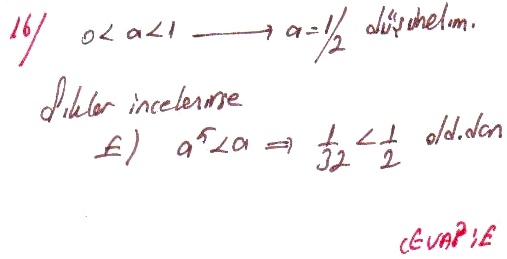 16/ 0 < a < 1 ⟶ a = 1/2 düşünelim.
Şıklar incelenirse
E) a⁵ < a ⇒ 1/32 < 1/2 old.dan
CEVAP: E